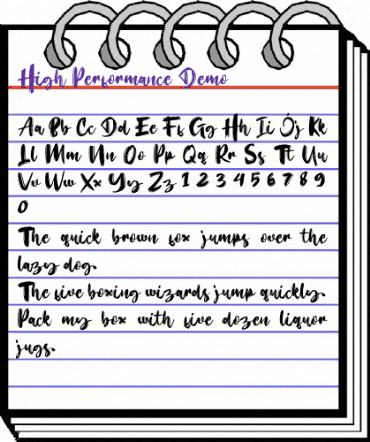 High Performance Demo
Aa Bb Cc Dd Ee Ff Gg Hh Ii Jj Kk
Ll Mm Nn Oo Pp Qq Rr Ss Tt Uu
Vv Ww Xx Yy Zz 1 2 3 4 5 6 7 8 9
0
The quick brown fox jumps over the
lazy dog.
The five boxing wizards jump quickly.
Pack my box with five dozen liquor
jugs.